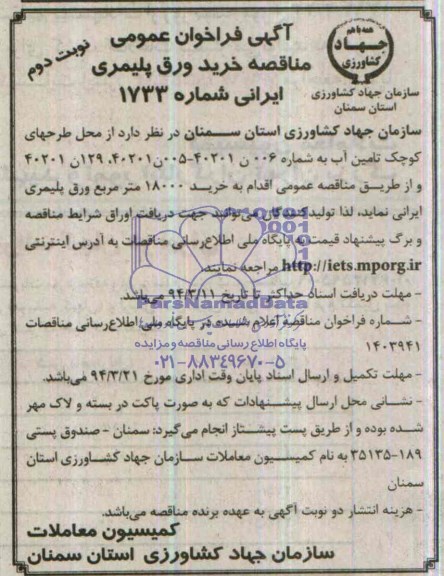 همه با هم
جهاد
کشاورزی
سازمان جهاد کشاورزی
استان سمنان
نوبت دوم
آگهی فراخوان عمومی
مناقصه خرید ورق پلیمری
ایرانی شماره ۱۷۳۳
سازمان جهاد کشاورزی استان سمنان در نظر دارد از محل طرحهای
کوچک تامین آب به شماره ۰۰۶ ن ۴۰۲۰۱-۰۰۵ن۴۰۲۰۱، ۱۲۹ن ۴۰۲۰۱
و از طریق مناقصه عمومی اقدام به خرید ۱۸۰۰۰ متر مربع ورق پلیمری
ایرانی نماید، لذا تولیدکنندگان می‌توانند جهت دریافت اوراق شرایط مناقصه
و برگ پیشنهاد قیمت به پایگاه ملی اطلاع‌رسانی مناقصات به آدرس اینترنتی
http://iets.mporg.ir مراجعه نمایند.
- مهلت دریافت اسناد حداکثر تا تاریخ ۹۴/۳/۱۱ می‌باشد.
ParsNamadData
- شماره فراخوان مناقصه اعلام شده در پایگاه ملی اطلاع‌رسانی مناقصات
پایگاه اطلاع رسانی مناقصه و مزایده
۱۴۰۳۹۴۱
۰۲۱-۸۸۳۴۹۶۷۰-۵
- مهلت تکمیل و ارسال اسناد پایان وقت اداری مورخ ۹۴/۳/۲۱ می‌باشد.
- نشانی محل ارسال پیشنهادات که به صورت پاکت در بسته و لاک مهر
شده بوده و از طریق پست پیشتاز انجام می‌گیرد: سمنان - صندوق پستی
۳۵۱۳۵-۱۸۹ به نام کمیسیون معاملات سازمان جهاد کشاورزی استان
سمنان
- هزینه انتشار دو نوبت آگهی به عهده برنده مناقصه می‌باشد.
کمیسیون معاملات
سازمان جهاد کشاورزی استان سمنان